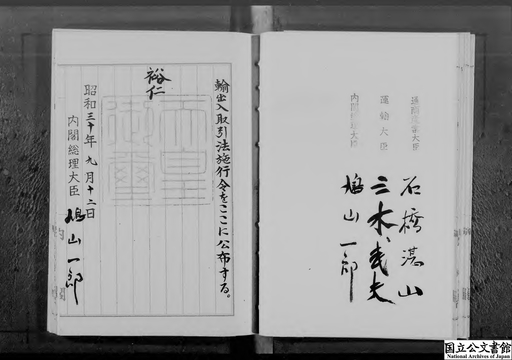 通商産業大臣
石橋湛山
運輸大臣
三木武夫
内閣総理大臣
鳩山一郎
輸出入取引法施行令をここに公布する。
裕仁
天皇御璽
昭和三十年九月十二日
内閣総理大臣
鳩山一郎
国立公文書館
National Archives of Japan